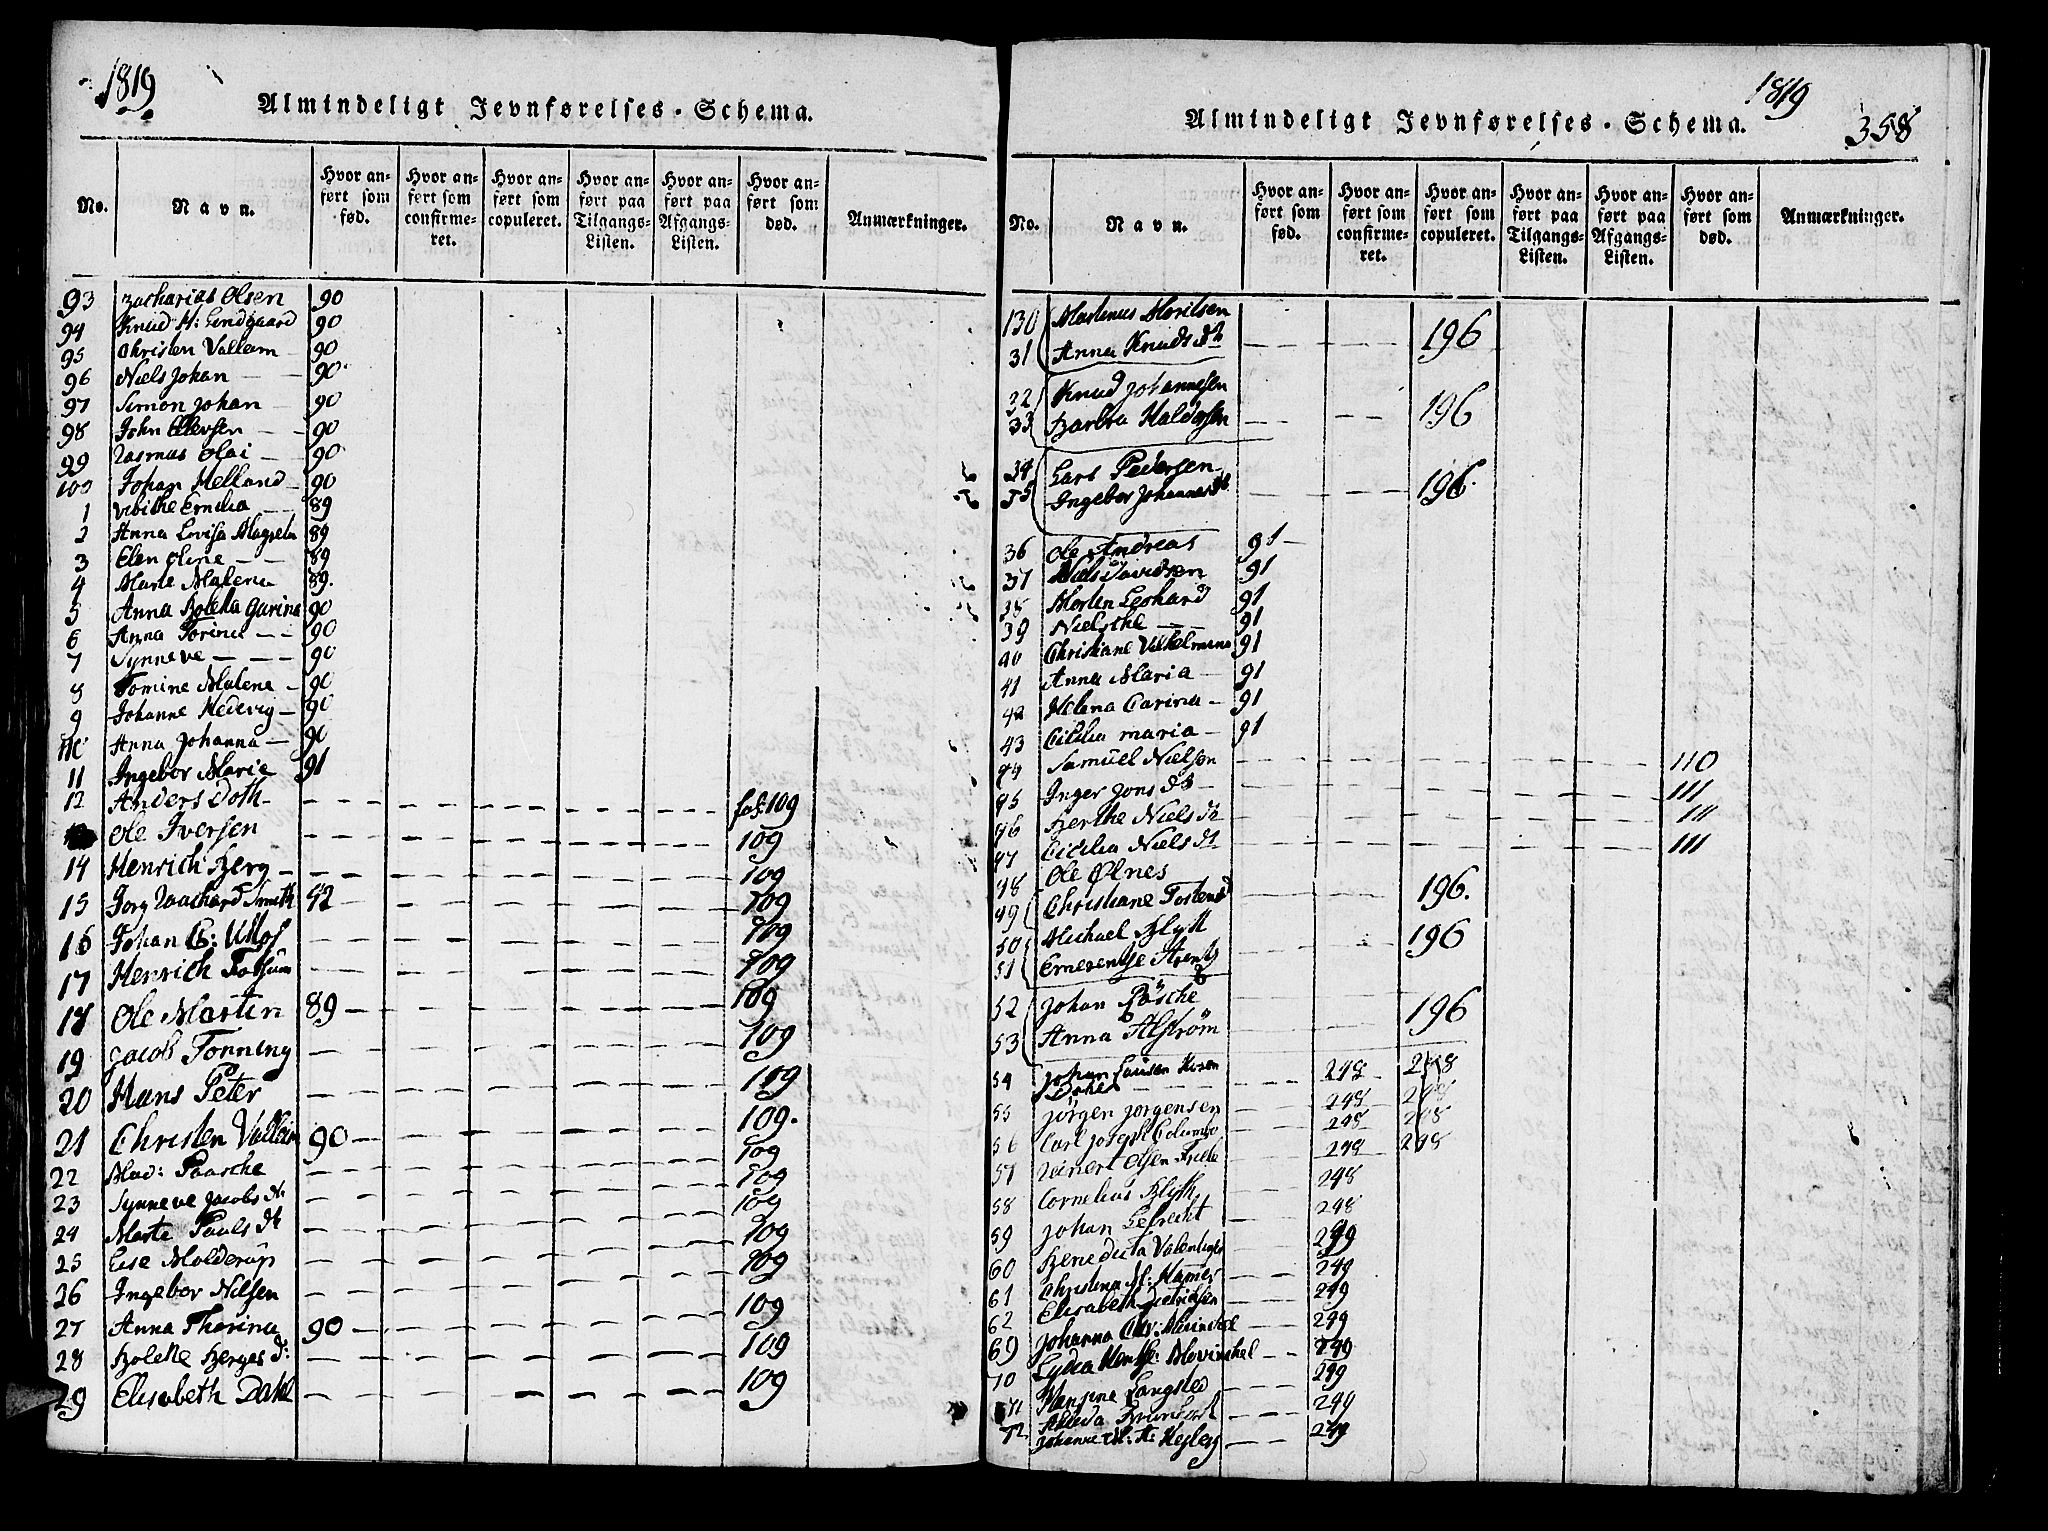 1819
Almindeligt Jevnførelses-Schema.
No.
Navn.
Hvor anført som fød.
Hvor anført som confirmeret.
Hvor anført som copuleret.
Hvor anført paa Tilgangs-Listen.
Hvor anført paa Afgangs-Listen.
Hvor anført som død.
Anmærkninger.
93 Zacharias Olsen 90
94 Knud H: Lindgaard 90
95 Christen Vallem 90
96 Niels Johan 90
97 Simon Johan 90
98 John Ellevsen 90
99 Rasmus Olai 90
100 Johan Melland 90
1 Vibiche Emilia 89
2 Anna Lovisa 89
3 Elen Oline 89
4 Marie Malena 89.
5 Anna Bolletta Garina 90
6 Anna Torina 90
7 Synneve 90
8 Tomine Malene 90
9 Johanne Hedevig 90
110 Anna Johanna 90
11 Ingebor Marie 91
12 Anders Doth fol: 109
Ole Iversen 109
14 Henrich Berg 109
15 Jorg Zachard Smith 42 109
16 Johan C: 109
17 Henrich 109
18 Ole Martin 89 109
19 Jacob Tonning 109
20 Hans Peter 109
21 Christen Vallem 90 109.
22 Mad: Paasche 109
23 Synneve Jacobs dr 109
24 Marte Pauls dr 109
25 Else Molderup 109
26 Ingebor Nilsen 109
27 Anna Thorina 90 109
28 Bolette Berges d: 109
29 Elisabeth Dahl 109
1819
358
Almindeligt Jevnførelses-Schema.
No.
Navn.
Hvor anført som fød.
Hvor anført som confirmeret.
Hvor anført som copuleret.
Hvor anført paa Tilgangs-Listen.
Hvor anført paa Afgangs-Listen.
Hvor anført som død.
Anmærkninger.
130 Martenus Moritsen
31 Anna Knuds dr 196
32 Knud Johannesen
33 Barbra Haldorsen 196
34 Lars Pedersen
35 Ingebor Johannes dr 196.
36 Ole Andreas 91
37 Niels Davidsen 91
38 Morten Leohard 91
39 Nielsche 91
40 Christiane Vilhelmina 91
41 Anna Maria 91
42 Helena Carina 91
43 Cicilia maria 91
44 Samuel Nielsen 110
45 Inger Jons dr 111
46 Berthe Niels dr 111
47 Cicilia Niels dr 111
48 Ole Olnes
49 Christiane 196.
50 Michael Blytt
51 Emerentse 196
52 Johan Pasche
53 Anna Alstrøm 196
54 Johan 248 248
55 Jörgen Jorgensen 248 248
56 Carl Joseph Columbo 248 248
57 Reinert Olsen Friele 248 248
58 Cornelius Blyth 248
59 Johan Lebrecht 248
60 Benedicta Valentinsen 249
61 Christina M: Hamer 249
62 Elisabeth Diedrichsen 249
69 Johanna 249
70 Lydia 249
71 Hansine Langsted 249
72 Alleda 249
Johanne 249